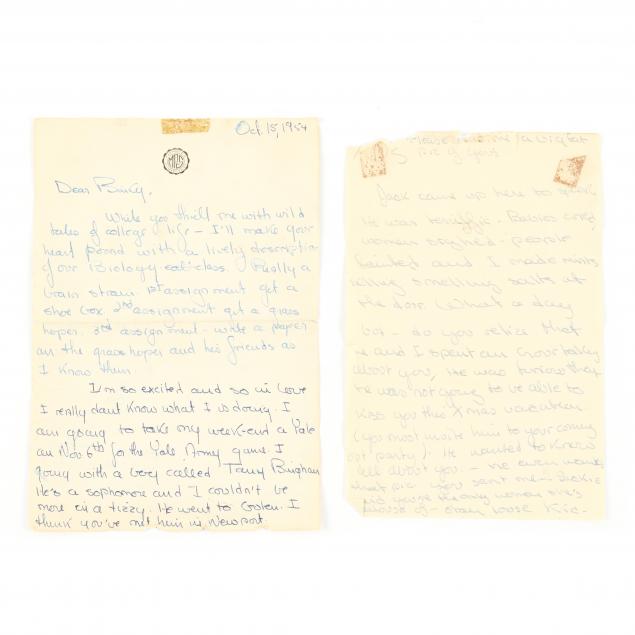 Oct. 15, 1954
Dear
While you thrill me with wild
tales of college life - I'll make your
heart pound with a lively description
of our Biology class. Really a
brain strain. 1st assignment get a
shoe box. 2nd assignment get a grass
hoper. 3rd assignment - write a paper
on the grasshoper and his friends as
I know them.
I'm so excited and so in love
I really don't know what I is doing. I
am going to take my week-end a Yale
on Nov 6th for the Yale Army game. I
going with a boy called Bingham
He's a sophomore and I couldn't be
more in a tizzy. He went to I
think you've met him in Newport.
pic of you
Jack came up here to
He was terriffic - Babies cried
women sighed - people
fainted and I made mints
selling smelling salts at
the door. What a day
but - do you relize that
he and I spent an hour talking
about you, He was furious that
he was not going to be able to
kiss you this Xmas vacation
(you must invite him to your coming
out party). He wanted to know
all about you - he even
what pic you sent me -
the only woman
of -